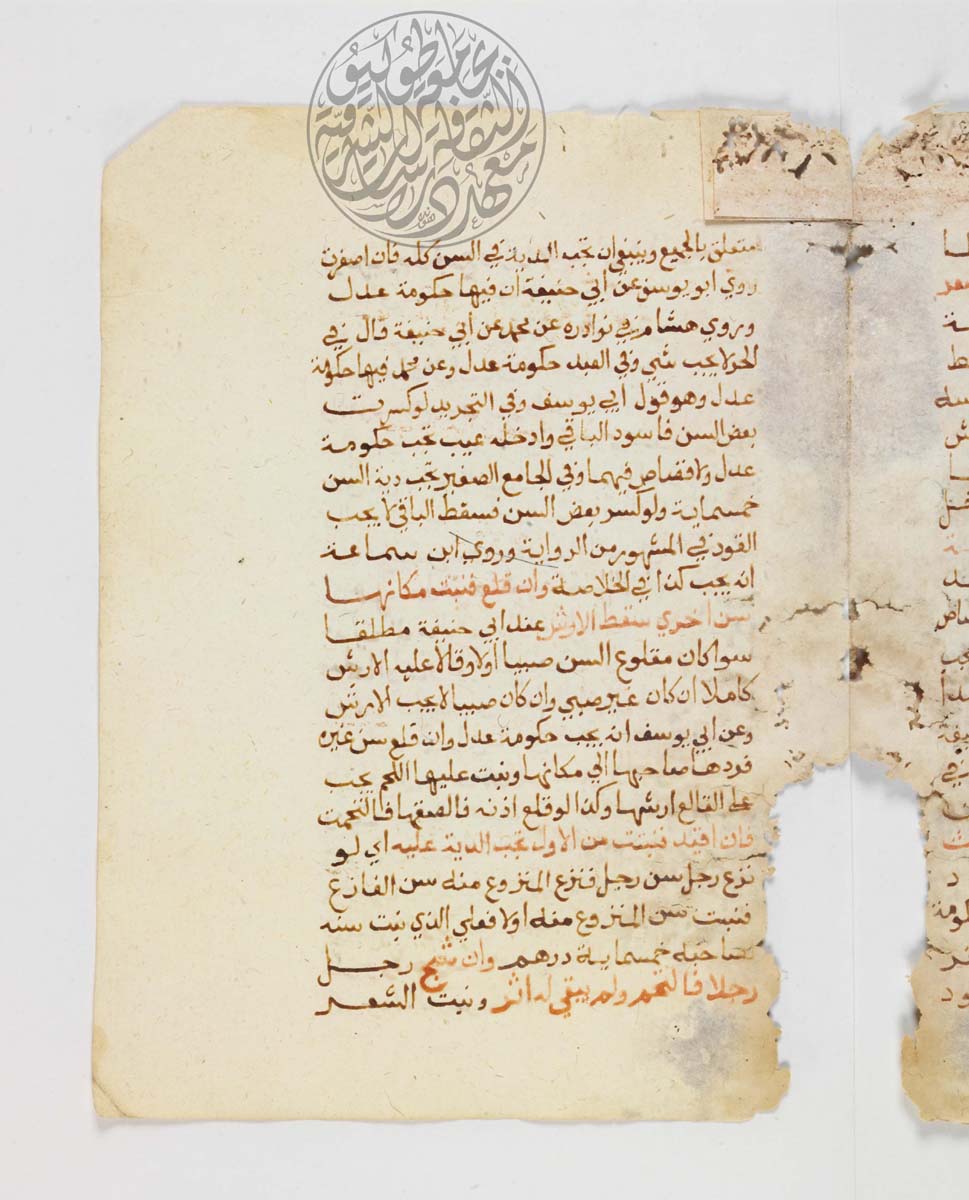 متعلق بالجميع وينبغي ان تجب الدية في السن كله فان اصفرت
روي ابو يوسف عن ابي حنيفة ان فيها حكومة عدل
وروي هشام في نوادره عن محمد عن ابي حنيفة قال في
الحر لا يجب شي وفي العبد حكومة عدل وعن محمد فيها حكومة
عدل وهو قول ابي يوسف وفي التجريد لو كسرت
بعض السن فاسود الباقي وادخله عيب تجب حكومة
عدل ولا قصاص فيهما وفي الجامع الصغير تجب دية السن
خمسماية ولو كسر بعض السن فسقط الباقي لا يجب
القود في المشهور من الرواية وروي ابن سماعة
انه يجب كذا في الخلاصة وان قلع فنبتت مكانها
سن اخري سقط الارش عند ابي حنيفة مطلقا
سوا كان مقلوع السن صبيا اولا وقالا عليه الارش
كاملا ان كان غير صبي وان كان صبيا لا يجب الارش
وعن ابي يوسف انه يجب حكومة عدل وان قلع سن غيره
فردها صاحبها الي مكانها ونبت عليها اللحم يجب
علي القالع ارشها وكذا لو قلع اذنه فالصقها فالتحمت
فان اقيد فنبتت من الاول تجب الدية عليه اي لو
نزع رجل سن رجل فنزع المنزوع منه سن النازع
فنبتت سن المنزوع منه اولا فعلي الذي نبت سنه
لصاحبه خمسماية درهم وان شج رجل
رجلا فالتحم ولم يبقي له اثر ونبت الشعر